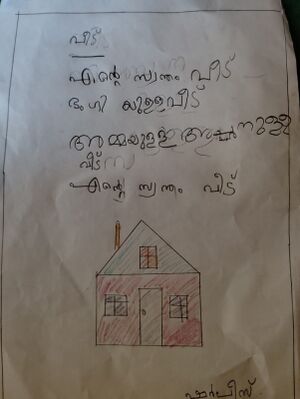 വീട്
എന്റെ സ്വന്തം വീട്
ഭംഗി യുള്ളവീട്
അമ്മയുള്ള അച്ഛനുള്ള
വീട്
എന്റെ സ്വന്തം വീട്